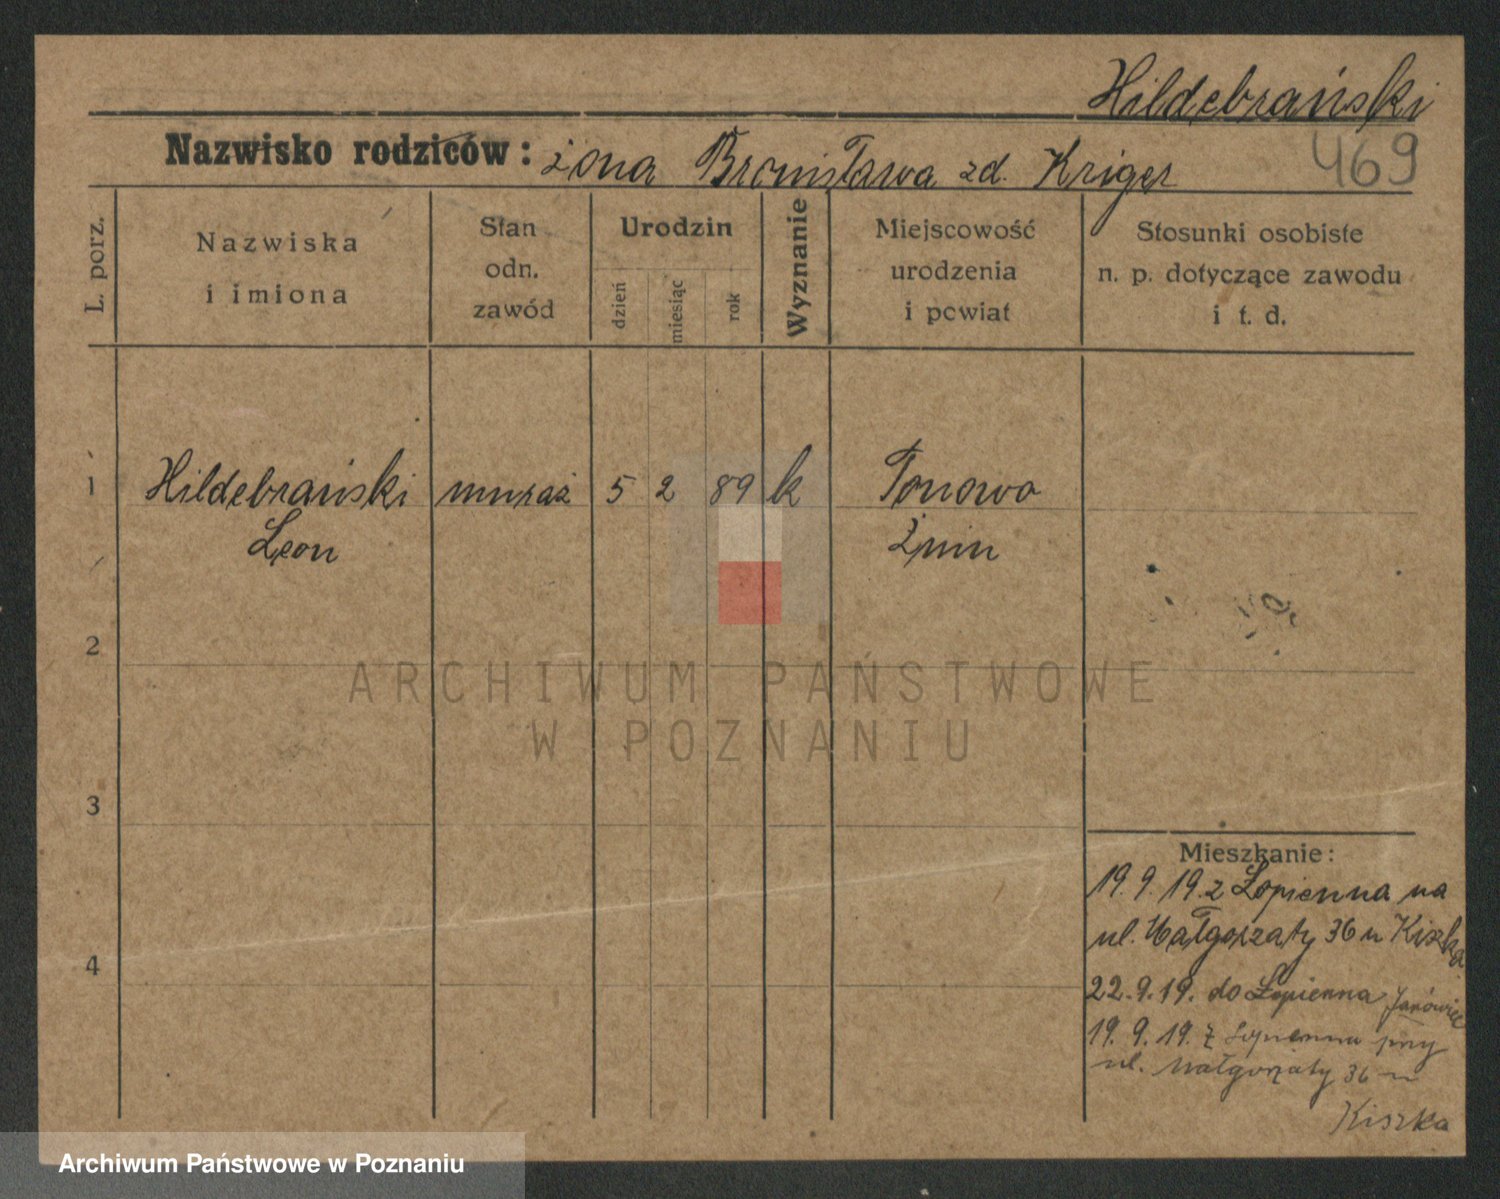 Hildebrański
Nazwisko rodziców: żona Bronisława zd. Kriger
469
L. porz.
Nazwiska
i imiona
Stan
odn.
zawód
Urodzin
dzień
miesiąc
rok
Wyznanie
Miejscowość
urodzenia
i powiat
Stosunki osobiste
n. p. dotyczące zawodu
i t. d.
1 Hildebrański muraż 5 2 89 k Tonowo
Leon Żnin
2
ARCHIWUM PAŃSTWOWE
W POZNANIU
3
Mieszkanie:
19.9.19. z Łopienna na
ul. Małgorzaty 36 u Kiszka
4
22.9.19. do Łopienna Janówiec
19.9.19. z Łopienna przy
ul. Małgorzaty 36 u
Kiszka
Archiwum Państwowe w Poznaniu